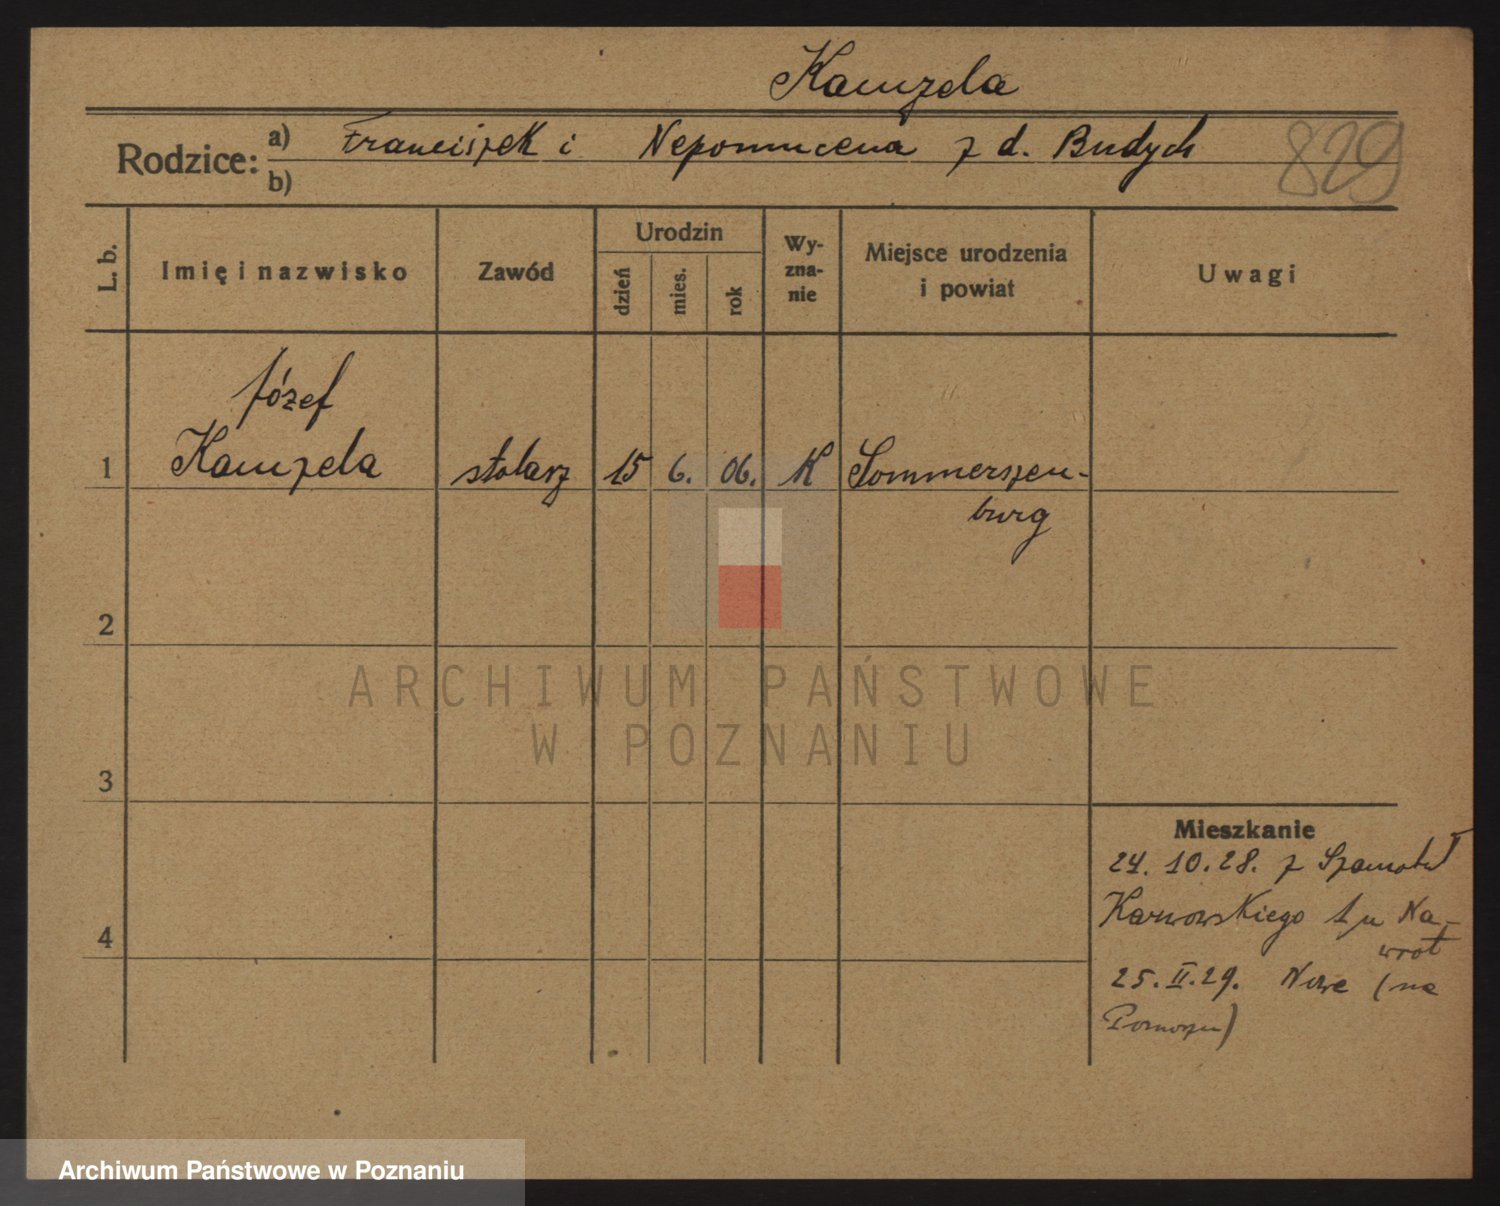 Kamzela
Rodzice: a) Franciszek i Nepomucena z d. Budych
829
b)
L. b.
Imię i nazwisko
Zawód
Urodzin
dzień
mies.
rok
Wy-
zna-
nie
Miejsce urodzenia
i powiat
Uwagi
Józef
1 Kamzela stolarz 15 6. 06. K Sommerszen-
burg
2
ARCHIWUM PAŃSTWOWE
W POZNANIU
3
Mieszkanie
24. 10. 28. z Szamotuł
Karwowskiego 1 u Na-
wrot
4
25. II. 29. Nowe (na
Pomorzu)
Archiwum Państwowe w Poznaniu